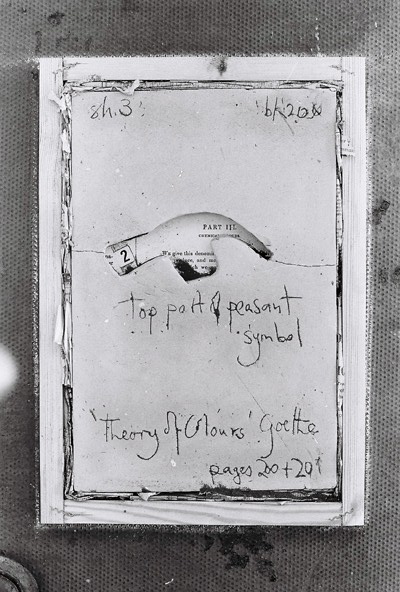 sh.3
2
PART III.
We give this denomi
Top part of peasant
symbol
'Theory of Colours' Goethe
pages 200 + 201